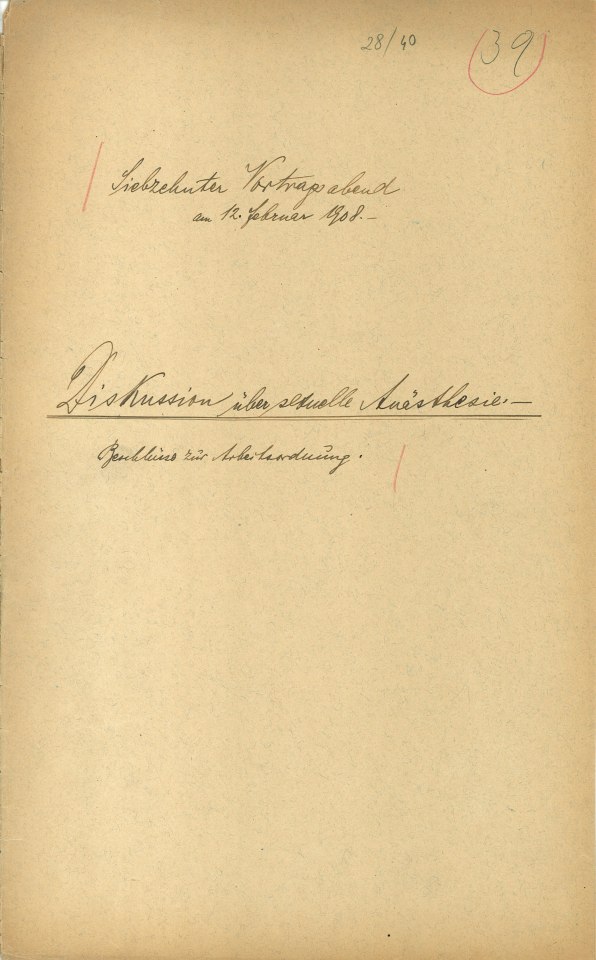 28/40
39
Siebzehnter Vortragsabend
am 12. Februar 1908.–
Diskussion über sexuelle Anästhesie.–
Beschlüsse zur Arbeitsordnung.